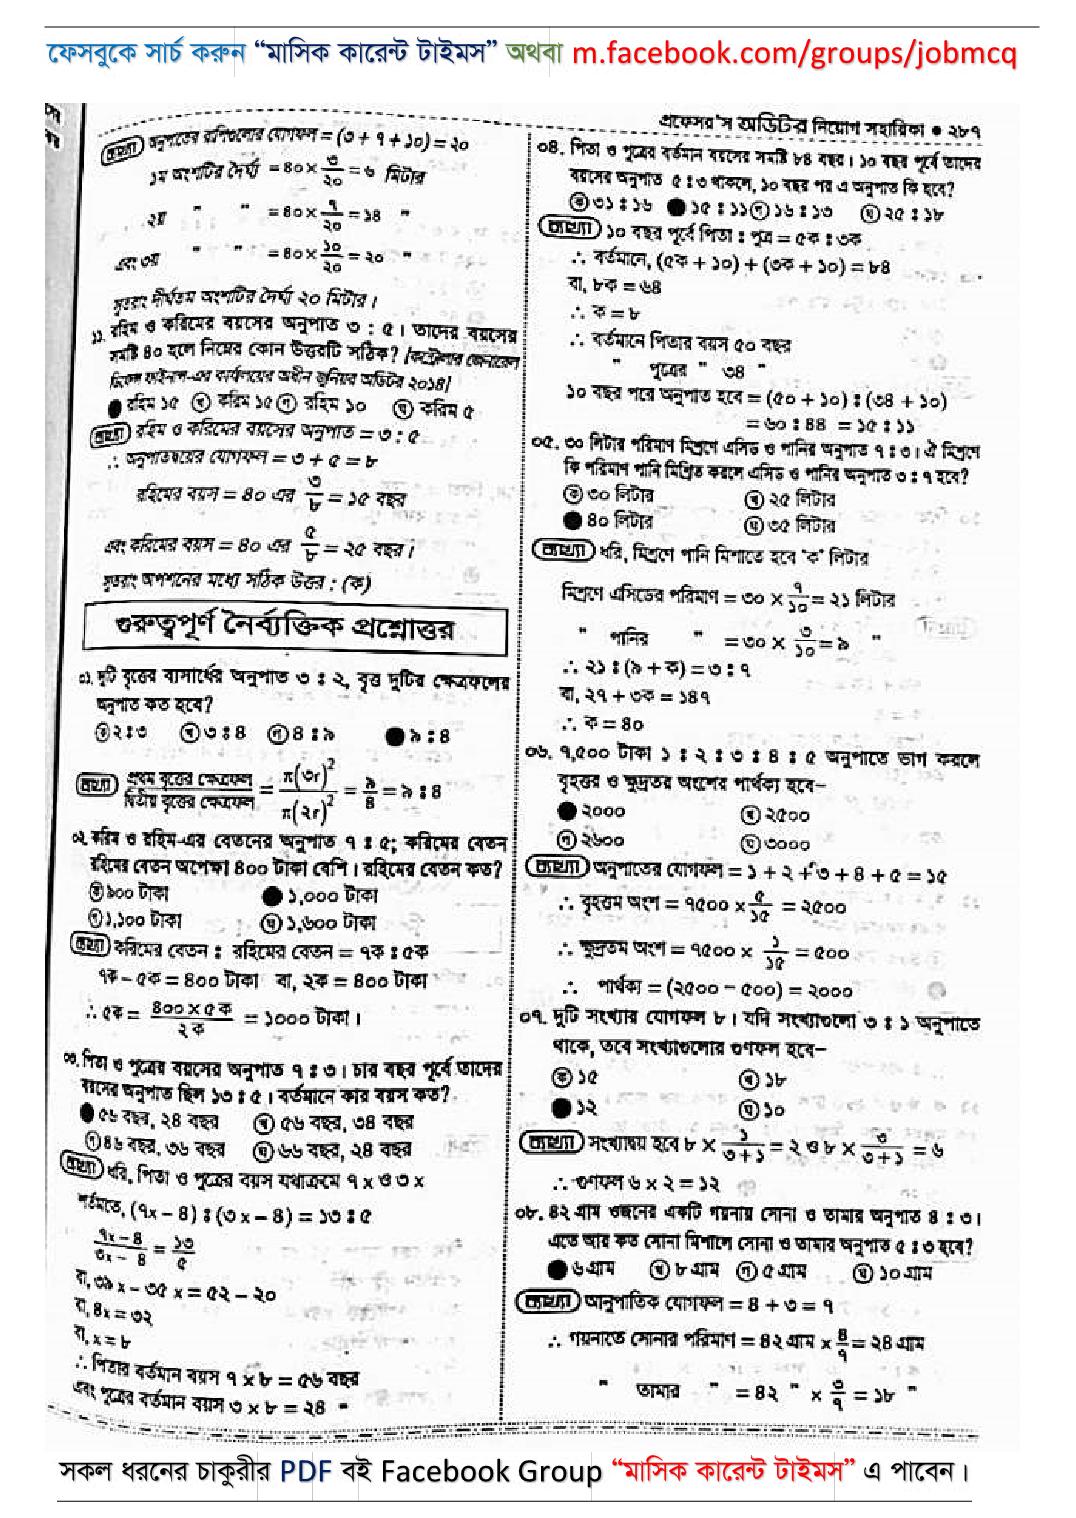 ফেসবুকে সার্চ করুন “মাসিক কারেন্ট টাইমস” অথবা m.facebook.com/groups/jobmcq
প্রফেসর'স অডিটর নিয়োগ সহায়িকা ● ২৮৭
ব্যাখ্যা অনুপাতের রাশিগুলোর যোগফল = (৩ + ৭ + ১০) = ২০
১ম অংশটির দৈর্ঘ্য = ৪০ × ৩/২০ = ৬ মিটার
২য় " " = ৪০ × ৭/২০ = ১৪ "
এবং ৩য় " " = ৪০ × ১০/২০ = ২০ "
সুতরাং দীর্ঘতম অংশটির দৈর্ঘ্য ২০ মিটার।
১১. রহিম ও করিমের বয়সের অনুপাত ৩ : ৫। তাদের বয়সের
সমষ্টি ৪০ হলে নিম্নের কোন উত্তরটি সঠিক? [কন্ট্রোলার জেনারেল
ডিফেন্স ফাইনান্স-এর কার্যালয়ের অধীন জুনিয়র অডিটর ২০১৪]
● রহিম ১৫ খ করিম ১৫ গ রহিম ১০ ঘ করিম ৫
ব্যাখ্যা রহিম ও করিমের বয়সের অনুপাত = ৩ : ৫
∴ অনুপাতদ্বয়ের যোগফল = ৩ + ৫ = ৮
রহিমের বয়স = ৪০ এর ৩/৮ = ১৫ বছর
এবং করিমের বয়স = ৪০ এর ৫/৮ = ২৫ বছর।
সুতরাং অপশনের মধ্যে সঠিক উত্তর : (ক)
গুরুত্বপূর্ণ নৈর্ব্যক্তিক প্রশ্নোত্তর
০১. দুটি বৃত্তের ব্যাসার্ধের অনুপাত ৩ ঃ ২, বৃত্ত দুটির ক্ষেত্রফলের
অনুপাত কত হবে?
ক ২ঃ৩ খ ৩ঃ৪ গ ৪ঃ৯ ● ৯ঃ৪
ব্যাখ্যা প্রথম বৃত্তের ক্ষেত্রফল/দ্বিতীয় বৃত্তের ক্ষেত্রফল = π(৩r)²/π(২r)² = ৯/৪ = ৯ঃ৪
০২. করিম ও রহিম-এর বেতনের অনুপাত ৭ ঃ ৫; করিমের বেতন
রহিমের বেতন অপেক্ষা ৪০০ টাকা বেশি। রহিমের বেতন কত?
ক ৯০০ টাকা ● ১,০০০ টাকা
গ ১,১০০ টাকা ঘ ১,৬০০ টাকা
ব্যাখ্যা করিমের বেতন ঃ রহিমের বেতন = ৭ক ঃ ৫ক
৭ক – ৫ক = ৪০০ টাকা বা, ২ক = ৪০০ টাকা
∴ ৫ক = ৪০০ × ৫ক/২ক = ১০০০ টাকা।
০৩. পিতা ও পুত্রের বয়সের অনুপাত ৭ ঃ ৩। চার বছর পূর্বে তাদের
বয়সের অনুপাত ছিল ১৩ ঃ ৫। বর্তমানে কার বয়স কত?
● ৫৬ বছর, ২৪ বছর খ ৫৬ বছর, ৩৪ বছর
গ ৪৬ বছর, ৩৬ বছর ঘ ৬৬ বছর, ২৪ বছর
ব্যাখ্যা ধরি, পিতা ও পুত্রের বয়স যথাক্রমে ৭x ও ৩x
শর্তমতে, (৭x – ৪) ঃ (৩x – ৪) = ১৩ ঃ ৫
৭x – ৪/৩x – ৪ = ১৩/৫
বা, ৩৯x – ৩৫x = ৫২ – ২০
বা, ৪x = ৩২
বা, x = ৮
∴ পিতার বর্তমান বয়স ৭ × ৮ = ৫৬ বছর
এবং পুত্রের বর্তমান বয়স ৩ × ৮ = ২৪ "
০৪. পিতা ও পুত্রের বর্তমান বয়সের সমষ্টি ৮৪ বছর। ১০ বছর পূর্বে তাদের
বয়সের অনুপাত ৫ ঃ ৩ থাকলে, ১০ বছর পর এ অনুপাত কি হবে?
ক ৩১ ঃ ১৬ ● ১৫ ঃ ১১ গ ১৬ ঃ ১৩ ঘ ২৫ ঃ ১৮
ব্যাখ্যা ১০ বছর পূর্বে পিতা ঃ পুত্র = ৫ক ঃ ৩ক
∴ বর্তমানে, (৫ক + ১০) + (৩ক + ১০) = ৮৪
বা, ৮ক = ৬৪
∴ ক = ৮
∴ বর্তমানে পিতার বয়স ৫০ বছর
" পুত্রের " ৩৪ "
১০ বছর পরে অনুপাত হবে = (৫০ + ১০) ঃ (৩৪ + ১০)
= ৬০ ঃ ৪৪ = ১৫ ঃ ১১
০৫. ৩০ লিটার পরিমাণ মিশ্রণে এসিড ও পানির অনুপাত ৭ ঃ ৩। ঐ মিশ্রণে
কি পরিমাণ পানি মিশ্রিত করলে এসিড ও পানির অনুপাত ৩ ঃ ৭ হবে?
ক ৩০ লিটার খ ২৫ লিটার
● ৪০ লিটার ঘ ৩৫ লিটার
ব্যাখ্যা ধরি, মিশ্রণে পানি মিশাতে হবে 'ক' লিটার
মিশ্রণে এসিডের পরিমাণ = ৩০ × ৭/১০ = ২১ লিটার
" পানির " = ৩০ × ৩/১০ = ৯ "
∴ ২১ ঃ (৯ + ক) = ৩ ঃ ৭
বা, ২৭ + ৩ক = ১৪৭
∴ ক = ৪০
০৬. ৭,৫০০ টাকা ১ ঃ ২ ঃ ৩ ঃ ৪ ঃ ৫ অনুপাতে ভাগ করলে
বৃহত্তর ও ক্ষুদ্রতর অংশের পার্থক্য হবে–
● ২০০০ খ ২৫০০
গ ২৬০০ ঘ ৩০০০
ব্যাখ্যা অনুপাতের যোগফল = ১ + ২ + ৩ + ৪ + ৫ = ১৫
∴ বৃহত্তম অংশ = ৭৫০০ × ৫/১৫ = ২৫০০
∴ ক্ষুদ্রতম অংশ = ৭৫০০ × ১/১৫ = ৫০০
∴ পার্থক্য = (২৫০০ – ৫০০) = ২০০০
০৭. দুটি সংখ্যার যোগফল ৮। যদি সংখ্যাগুলো ৩ ঃ ১ অনুপাতে
থাকে, তবে সংখ্যাগুলোর গুণফল হবে–
ক ১৫ খ ১৮
● ১২ ঘ ১০
ব্যাখ্যা সংখ্যাদ্বয় হবে ৮ × ১/৩+১ = ২ ও ৮ × ৩/৩+১ = ৬
∴ গুণফল ৬ × ২ = ১২
০৮. ৪২ গ্রাম ওজনের একটি গয়নায় সোনা ও তামার অনুপাত ৪ ঃ ৩।
এতে আর কত সোনা মিশালে সোনা ও তামার অনুপাত ৫ ঃ ৩ হবে?
● ৬ গ্রাম খ ৮ গ্রাম গ ৫ গ্রাম ঘ ১০ গ্রাম
ব্যাখ্যা আনুপাতিক যোগফল = ৪ + ৩ = ৭
∴ গয়নাতে সোনার পরিমাণ = ৪২ গ্রাম × ৪/৭ = ২৪ গ্রাম
" তামার " = ৪২ " × ৩/৭ = ১৮ "
সকল ধরনের চাকুরীর PDF বই Facebook Group “মাসিক কারেন্ট টাইমস” এ পাবেন।